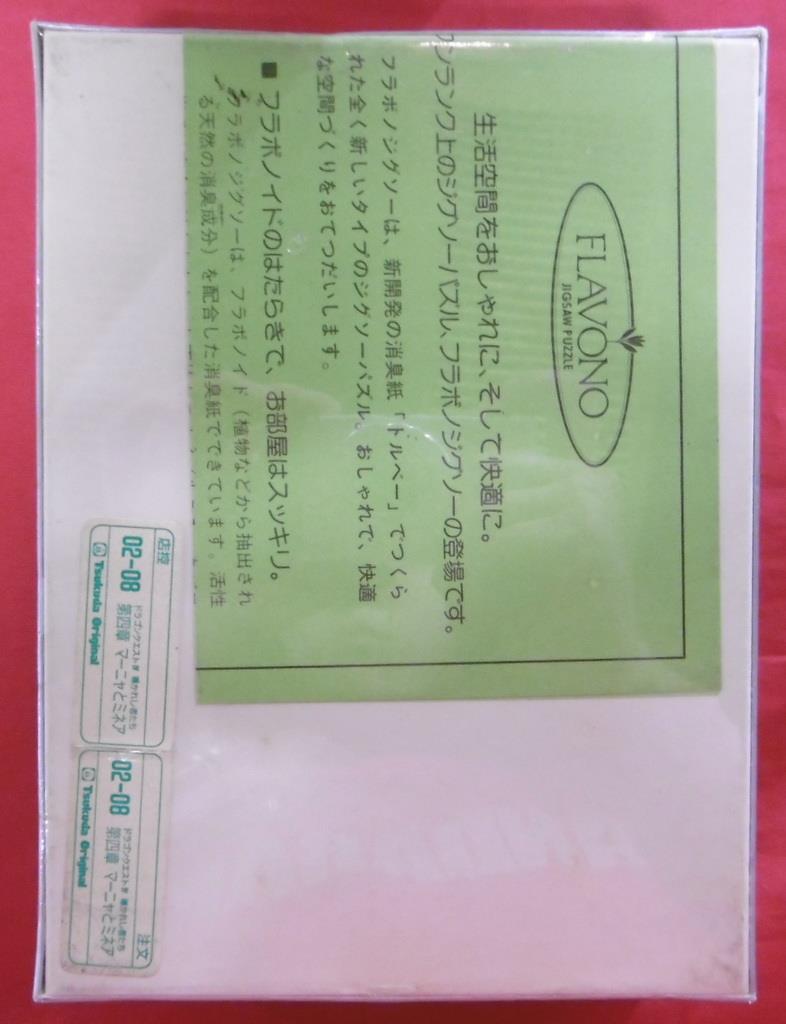 FLAVONO
JIGSAW PUZZLE
生活空間をおしゃれに、そして快適に。
ワンランク上のジグソーパズル、フラボノジグソーの登場です。
フラボノジグソーは、新開発の消臭紙「トルベー」でつくら
れた全く新しいタイプのジグソーパズル。おしゃれで、快適
な空間づくりをおてつだいします。
■ フラボノイドのはたらきで、お部屋はスッキリ。
フラボノジグソーは、フラボノイド（植物などから抽出され
る天然の消臭成分）を配合した消臭紙でできています。活性
店控
ドラゴンクエストⅣ 導かれし者たち
02-08 第四章 マーニャとミネア
Tsukuda Original
注文
ドラゴンクエストⅣ 導かれし者たち
02-08 第四章 マーニャとミネア
Tsukuda Original